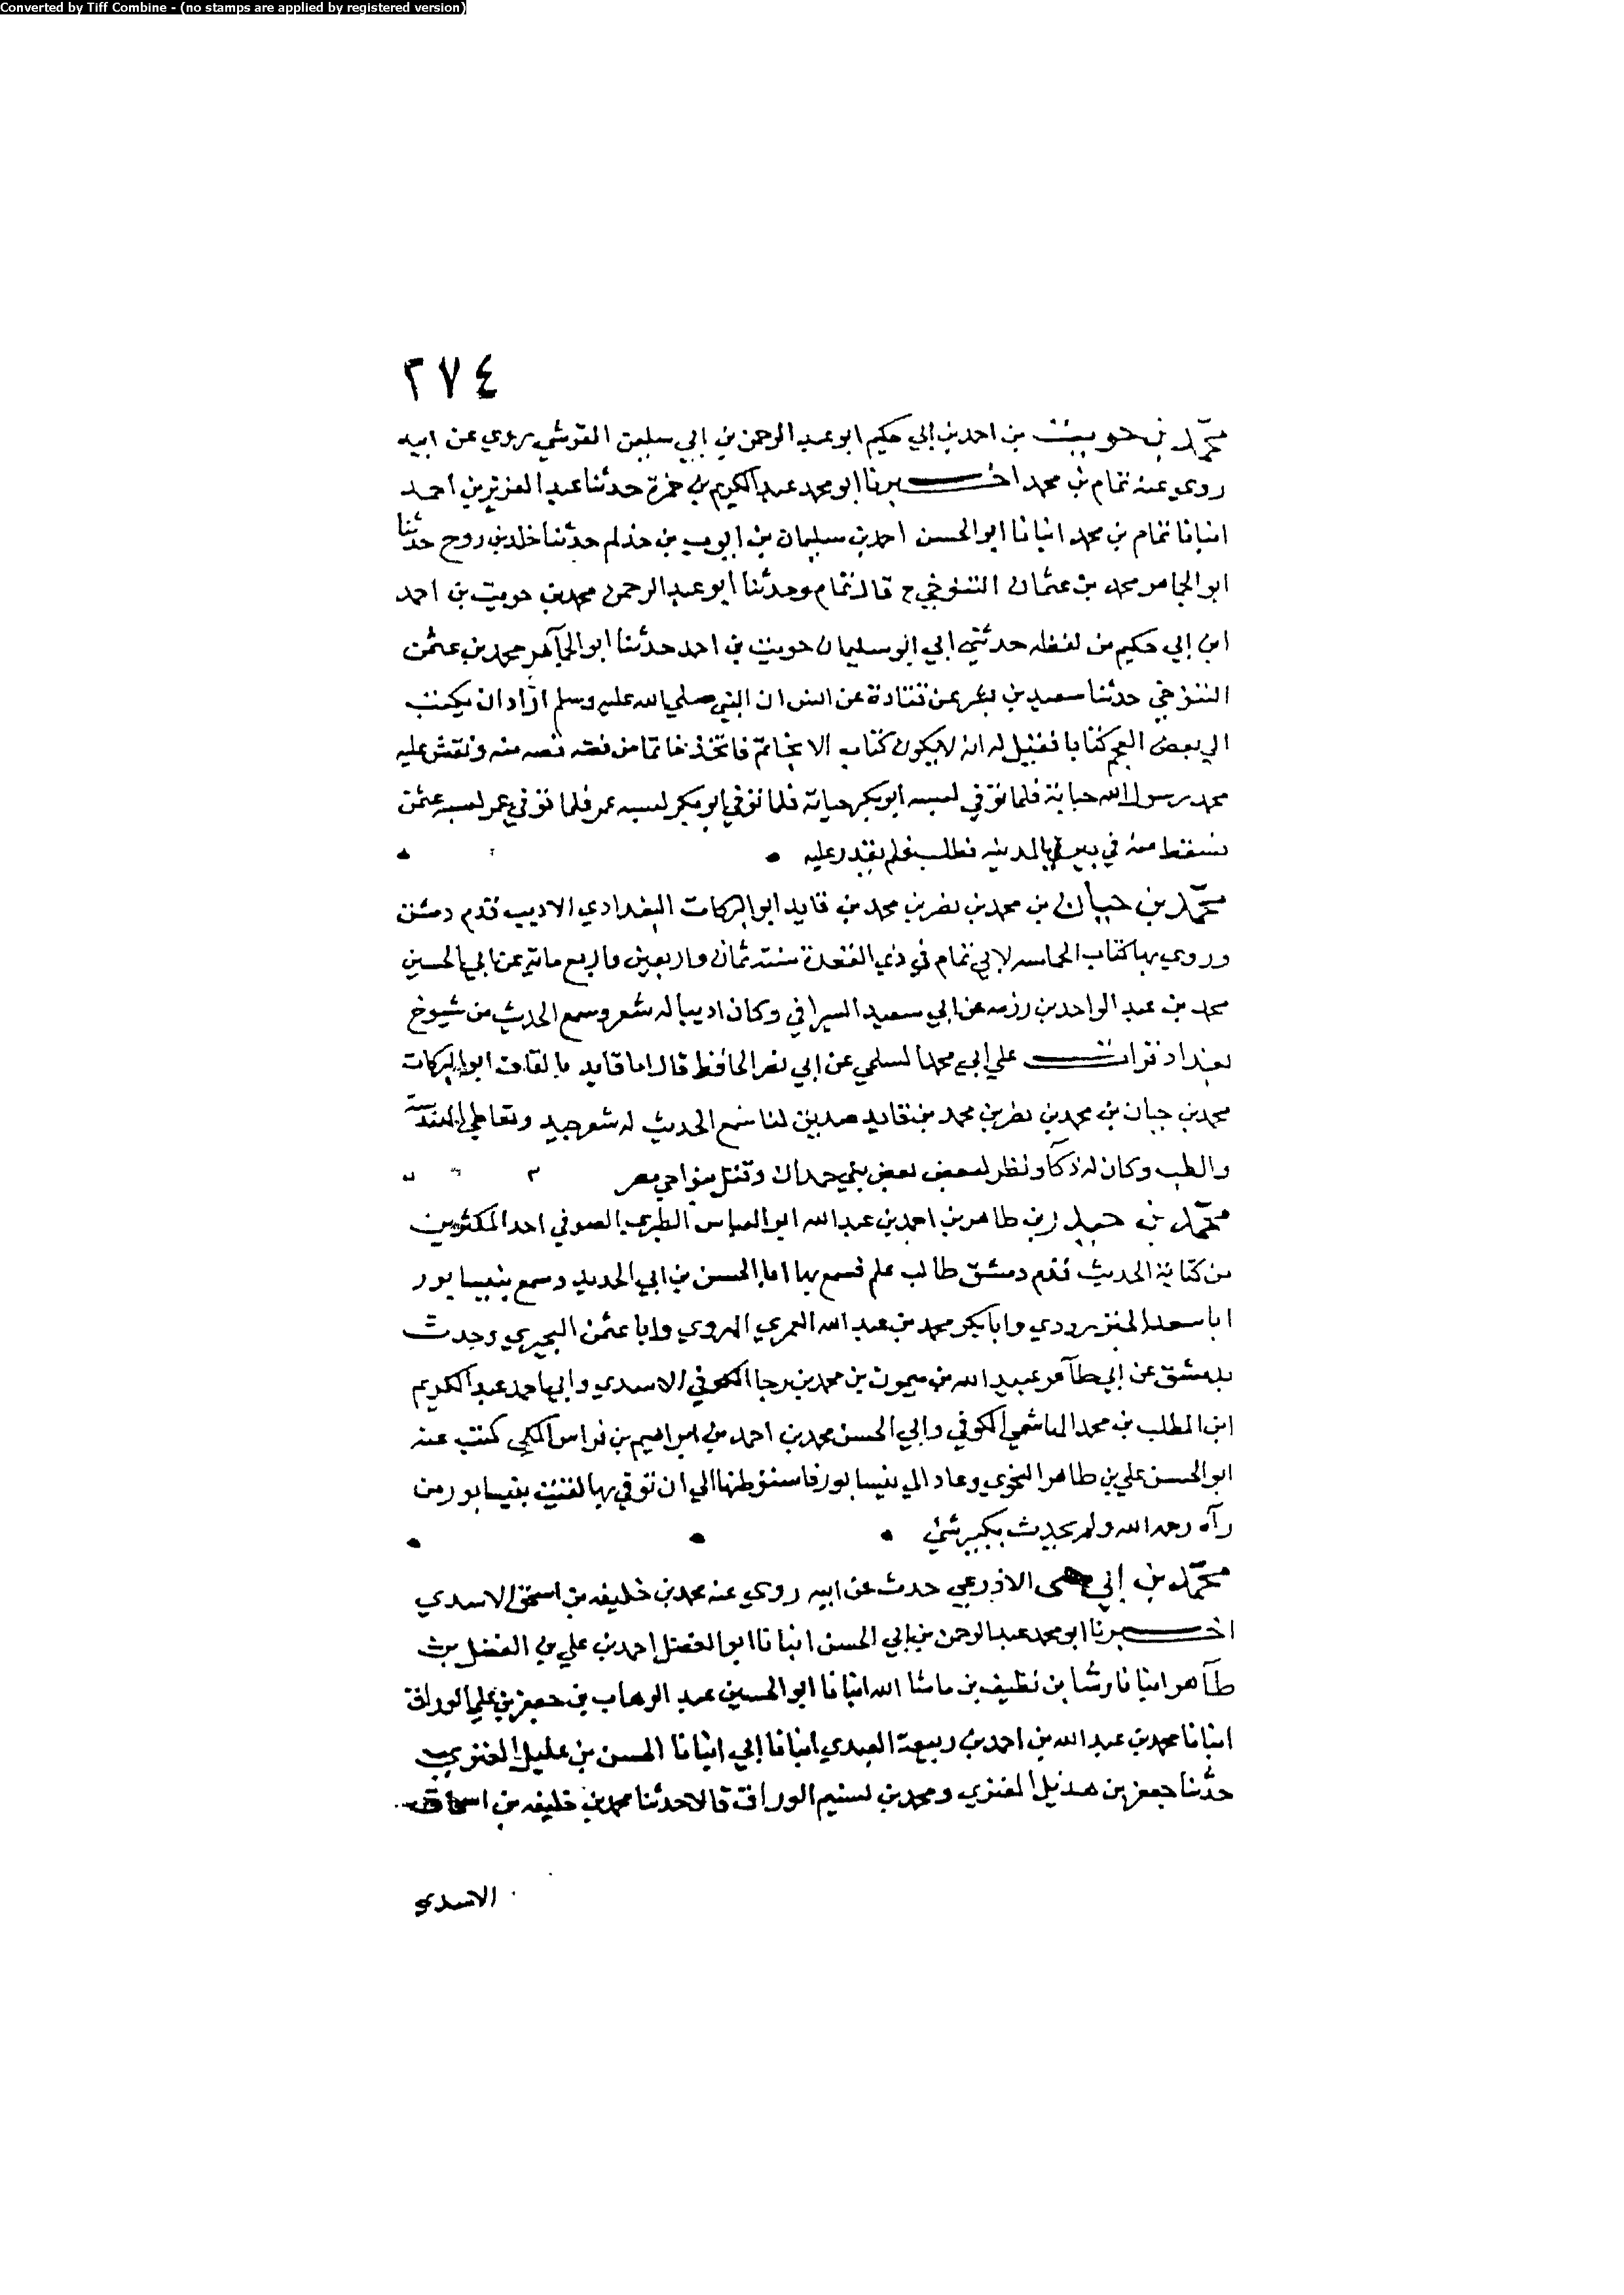 Converted by Tiff Combine - (no stamps are applied by registered version)
٢٧٤
محمد بن حويت بن احمد بن ابي حكيم ابو عبد الرحمن بن ابي سليمن القرشي روي عن ابيه
روي عنه تمام بن محمد اخبرنا ابو محمد عبد الكريم بن حمزة حدثنا عبد العزيز بن احمد
انبانا تمام بن محمد انبانا ابو الحسن احمد بن سليمان بن ايوب بن حذلم حدثنا خلد بن روح حدثنا
ابو الجماهر محمد بن عثمان التنوخي ح قال تمام وحدثنا ابو عبد الرحمن محمد بن حويت بن احمد
ابن ابي حكيم من لفظه حدثني ابي ابو سليمان حويت بن احمد حدثنا ابو الجماهر محمد بن عثمن
التنوخي حدثنا سعيد بن بشر عن قتادة عن انس ان النبي صلي الله عليه وسلم اراد ان يكتب
الي بعض العجم كتابا فقيل له انه لا يكون كتاب الا بخاتم فاتخذ خاتما من فضه فصه منه ونقش عليه
محمد رسول الله حياته فلما توفي لبسه ابو بكر حياته فلما توفي ابو بكر لبسه عمر فلما توفي عمر لبسه عثمن
فسقط منه في بير بالمدينه فطلب فلم يقدر عليه
محمد بن حبان بن محمد بن نصر بن محمد بن قايد ابو البركات البغدادي الاديب قدم دمشق
وروي بها كتاب الحماسه لابي تمام في ذي القعدة سنة ثمان واربعين واربع ماية عن ابي الحسين
محمد بن عبد الواحد بن رزمه عن ابي سعيد السيرافي وكان اديبا له شعر وسمع الحديث من شيوخ
بغداد قرات علي ابي محمد السلمي عن ابي نصر الحافظ قال اما قايد بالقاف ابو البركات
محمد بن حبان بن محمد بن نصر بن محمد بن قايد صديق لنا سمع الحديث له شعر جيد وتعاطي الهندسة
والطب وكان له ذكآ ونظر لبعض بني حمدان وقتل بنواحي مصر
محمد بن حيدر بن طاهر بن احمد بن عبد الله ابو العباس الطبري الصوفي احد المكثرين
من كتابة الحديث قدم دمشق طالب علم فسمع بها ابا الحسن بن ابي الحديد وسمع بنيسابور
ابا سعد الجنزرودي وابا بكر محمد بن عبد الله العمري الهروي وابا عثمن البحيري وحدث
بدمشق عن ابي طآهر عبيد الله بن ميمون بن محمد بن رجا الكوفي الاسدي وابي احمد عبد الكريم
ابن المطلب بن محمد الهاشمي الكوفي وابي الحسن محمد بن احمد بن ابراهيم بن فراس المكي كتب عنه
ابو الحسن علي بن طاهر النحوي وعاد الي نيسابور فاستوطنها الي ان توفي بها لقيت بنيسابور من
رآه رحمه الله ولم يحدث بكبير شئ
محمد بن ابي الاذرعي حدث عن ابيه روي عنه محمد بن خليفه بن اسحق الاسدي
اخبرنا ابو محمد عبد الرحمن بن ابي الحسن انبانا ابو الفضل احمد بن علي بن الفضل بن
طآهر انبانا رشا بن نظيف بن ماشا الله انبانا ابو الحسين عبد الوهاب بن جعفر بن علي الوراق
انبانا محمد بن عبد الله بن احمد بن ربيعة العبدي انبانا ابي انبانا الحسن بن عليل العنزي
حدثنا جعفر بن هذيل العنزي ومحمد بن تسنيم الوراق قالا حدثنا محمد بن خليفه بن اسحاق
الاسدي